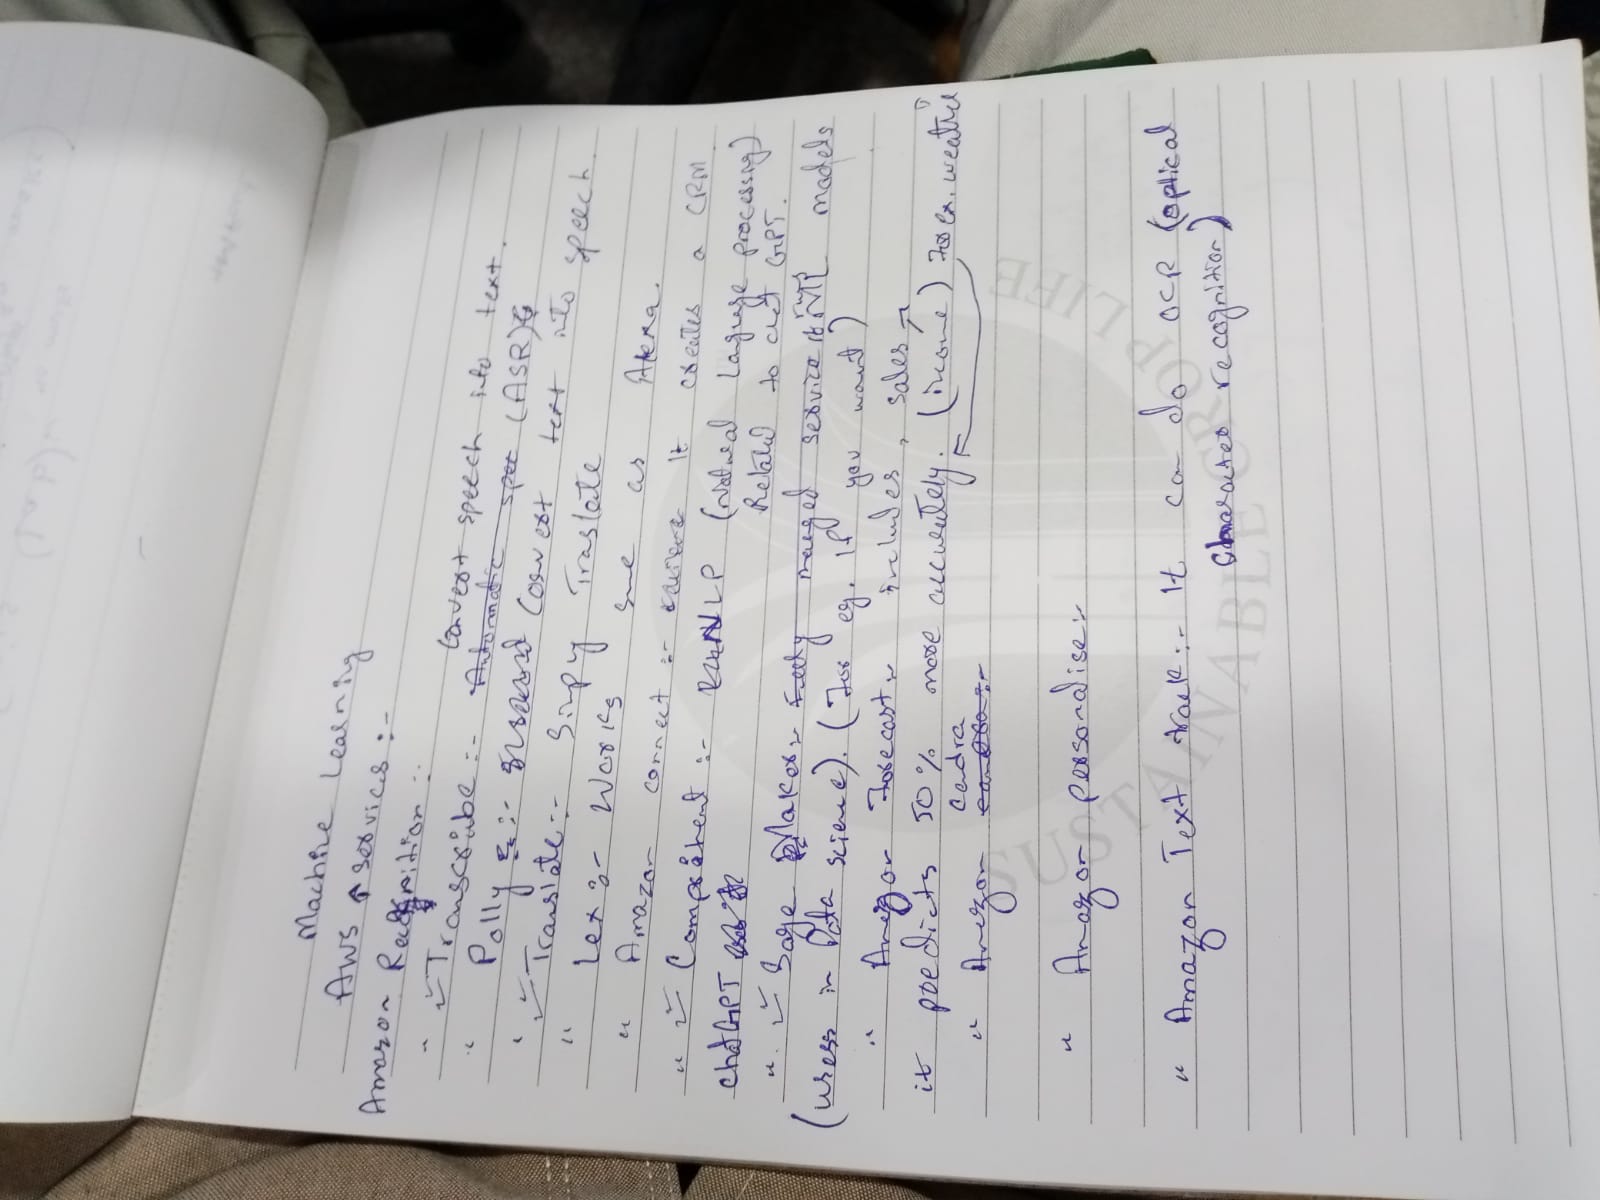 Machine Learning
AWS services :-
Amazon Rekognition :-
" Transcribe :- Convert speech into text.
" Polly :- Automatic spee (ASR)
" Translate :- Convert text into speech
" Lex :- Simply Translate
" Works same as Alexa.
" Amazon connect :- It creates a CRM
" Comprehend :- NLP (Natural Language processing)
ChatGPT Related to chat GPT.
" Sage Maker :- Fully managed service models
(uses in Data science). (For eg. If you want)
" Amazon Forecast :- includes, sales
it predicts 50% more accurately. (income) For ex. weather
" Amazon Cendra
" Amazon personalise :-
" Amazon Text track :- It can do OCR (optical
Character recognition)
SUSTAINABLE CROP LIFE